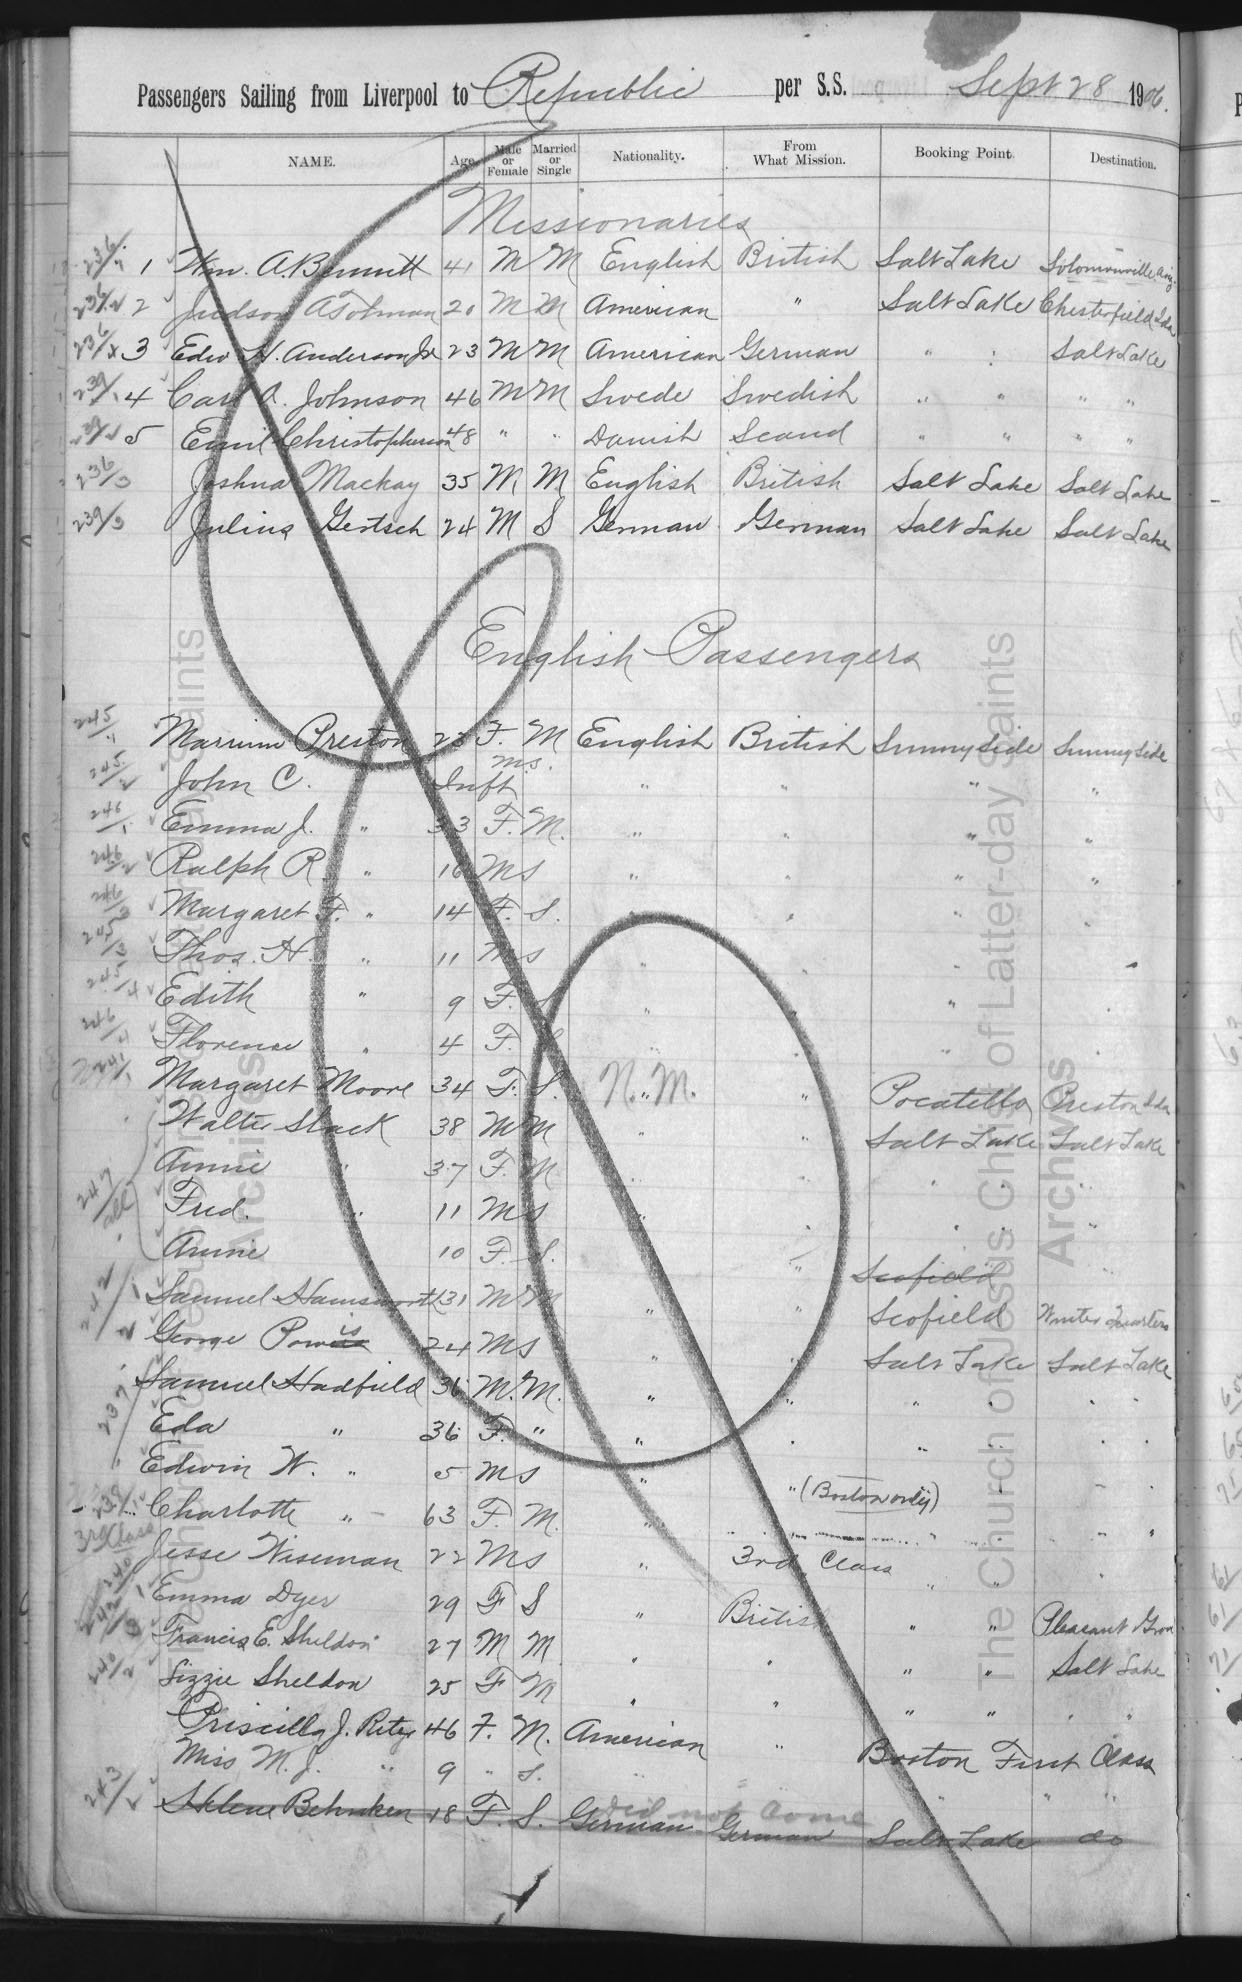 Passengers Sailing from Liverpool to Republic per S.S. Sept 28 1906.
NAME. Age. Male or Female Married or Single Nationality. From What Mission. Booking Point. Destination.
Missionaries
236/1 1 Wm. A. Bennett 41 M M English British Salt Lake Solomonville Ariz.
236/2 2 Judson A Tolman 20 M M American " Salt Lake Chesterfield Ida
236/4 3 Edw H. Anderson Jr 23 M M American German " " Salt Lake
239/1 4 Carl A. Johnson 46 M M Swede Swedish " " " "
239/2 5 Emil Christopherson 48 " " Danish Scand " " " "
236/3 Joshua Mackay 35 M M English British Salt Lake Salt Lake
239/3 Julius Gertsch 24 M S German German Salt Lake Salt Lake
English Passengers
245/1 Preston 23 F. M English British Sunnyside Sunnyside
245/2 John C. Inft m.s. " " "
246/1 Emma J. " 33 F. M. " " " "
246/2 Ralph R. " 16 M S " " " "
246/3 Margaret F. " 14 F. S. " " "
245/3 Thos. H. " 11 M S " " "
245/4 Edith " 9 F. S " " "
246/4 Florence " 4 F. S " " "
241/1 Margaret Moore 34 F. S. N.M. " " Pocatello Preston Ida
Walter Slack 38 M M " " Salt Lake Salt Lake
247/all Annie " 37 F. M " " " "
Fred. " 11 M S " " " "
Annie 10 F. S. " Scofield
242/1 Samuel 31 M M " " Scofield Winter Quarters
2 George Powis 24 M S " " Salt Lake Salt Lake
237/ Samuel Hadfield 36 M. M. " " " "
Eda " 36 F. " " " " "
Edwin W. " 5 M S " " (Boston only) " "
238/1 Charlotte " 63 F. M. " " " "
3rd Class Jesse Wiseman 22 M S " 3rd Class " " "
240/1 Emma Dyer 29 F S " British " " Pleasant Grove
Francis E. Sheldon 27 M M " " " " Salt Lake
240/2 Lizzie Sheldon 25 F M " " " " " "
Priscilla J. 46 F. M. American " Boston First Class
Miss M. J. " 9 " S. " " " "
243/ Helene Behnken 18 F. S. German German Salt Lake do
did not come
The Church of Jesus Christ of Latter-day Saints
Archives
The Church of Jesus Christ of Latter-day Saints
Archives